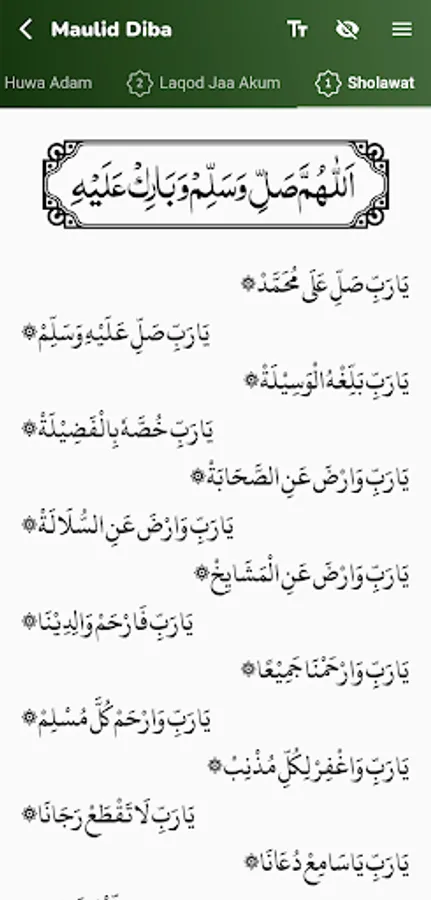 Maulid Diba
Huwa Adam
2 Laqod Jaa Akum
1 Sholawat
اَللّٰهُمَّ صَلِّ وَسَلِّمْ وَبَارِكْ عَلَيْهِ
يَارَبِّ صَلِّ عَلَى مُحَمَّدْ۞
يَارَبِّ صَلِّ عَلَيْهِ وَسَلِّمْ۞
يَارَبِّ بَلِّغْهُ الْوَسِيْلَةْ۞
يَارَبِّ خُصَّهُ بِالْفَضِيْلَةْ۞
يَارَبِّ وَارْضَ عَنِ الصَّحَابَةْ۞
يَارَبِّ وَارْضَ عَنِ السُّلَالَةْ۞
يَارَبِّ وَارْضَ عَنِ الْمَشَايِخْ۞
يَارَبِّ فَارْحَمْ وَالِدِيْنَا۞
يَارَبِّ وَارْحَمْنَا جَمِيْعًا۞
يَارَبِّ وَارْحَمْ كُلَّ مُسْلِمْ۞
يَارَبِّ وَاغْفِرْ لِكُلِّ مُذْنِبْ۞
يَارَبِّ لَا تَقْطَعْ رَجَانَا۞
يَارَبِّ يَاسَامِعْ دُعَانَا۞